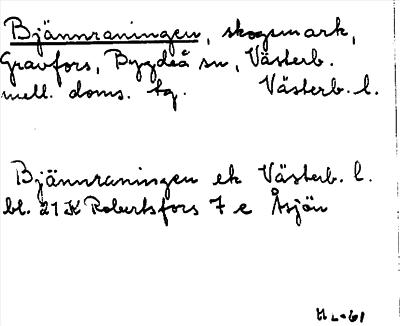 Bjännraningen, skogsmark,
Gravfors, Bygdeå sn, Västerb.
mell. doms. tg. Västerb. l.
Bjännraningen ek Västerb. l.
bl. 21 K Robertsfors 7 e Åsjön
HL-61